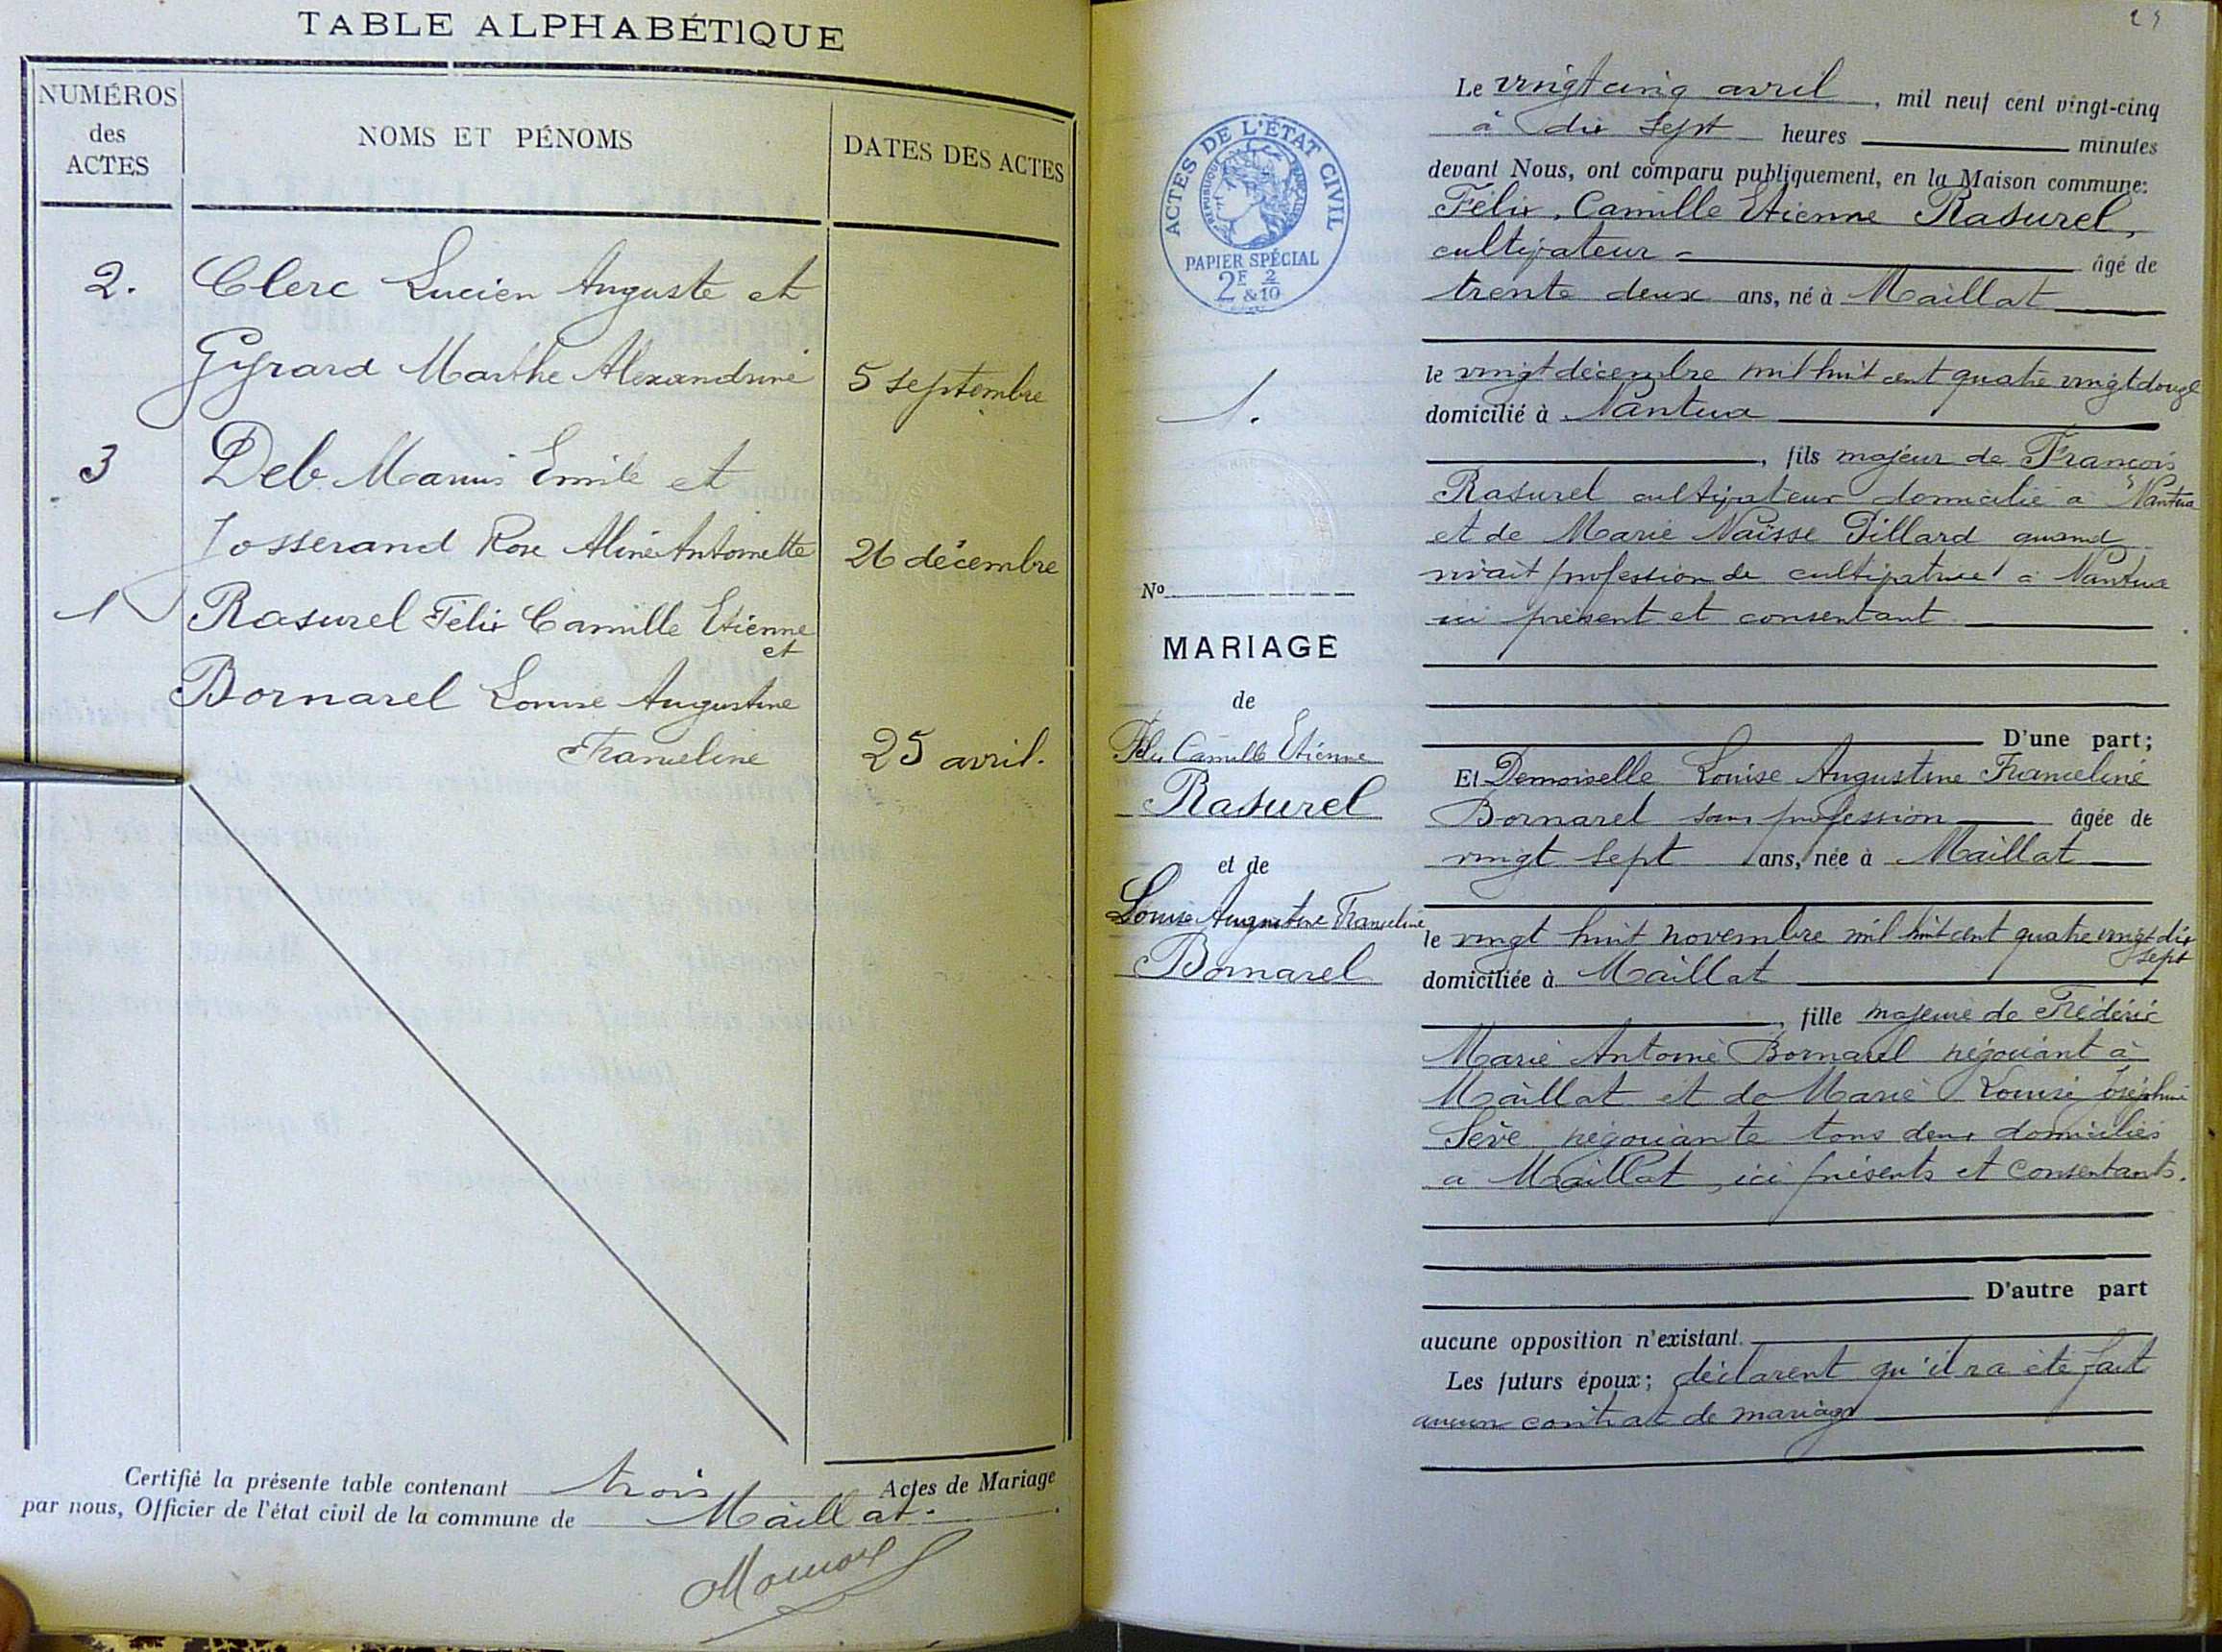 TABLE ALPHABÉTIQUE
NUMÉROS
des
ACTES
NOMS ET PÉNOMS
DATES DES ACTES
2. Clerc Lucien Auguste et
Gyrard Marthe Alexandrine 5 septembre
3 Deb Marius Emile et
Josserand Rose Aline Antoinette 26 décembre
1 Rasurel Félix Camille Etienne
et
Bornarel Louise Augustine
Franceline 25 avril.
Certifié la présente table contenant trois Actes de Mariage
par nous, Officier de l'état civil de la commune de Maillat.
ACTES DE L'ÉTAT CIVIL
RÉPUBLIQUE FRANÇAISE
PAPIER SPÉCIAL
2E 2
& 10
1.
No
MARIAGE
de
Félix Camille Etienne
Rasurel
et de
Louise Augustine Franceline
Bornarel
Le vingt cinq avril, mil neuf cent vingt-cinq
à dix sept heures minutes
devant Nous, ont comparu publiquement, en la Maison commune:
Félix, Camille Etienne Rasurel,
cultivateur âgé de
trente deux ans, né à Maillat
le vingt décembre mil huit cent quatre vingt douze
domicilié à Nantua
, fils majeur de François
Rasurel cultivateur domicilié à Nantua
et de Marie Naïsse Pillard quand
vivait profession de cultivatrice à Nantua
ici présent et consentant
D'une part;
Et Demoiselle Louise Augustine Franceline
Bornarel sans profession âgée de
vingt sept ans, née à Maillat
le vingt huit novembre mil huit cent quatre vingt dix
sept
domiciliée à Maillat
, fille majeure de Frédéric
Marie Antoine Bornarel négociant à
Maillat et de Marie Louise Joséphine
Sève négociante tous deux domiciliés
a Maillat, ici présents et consentants.
D'autre part
aucune opposition n'existant.
Les futurs époux; déclarent qu'il n'a été fait
aucun contrat de mariage